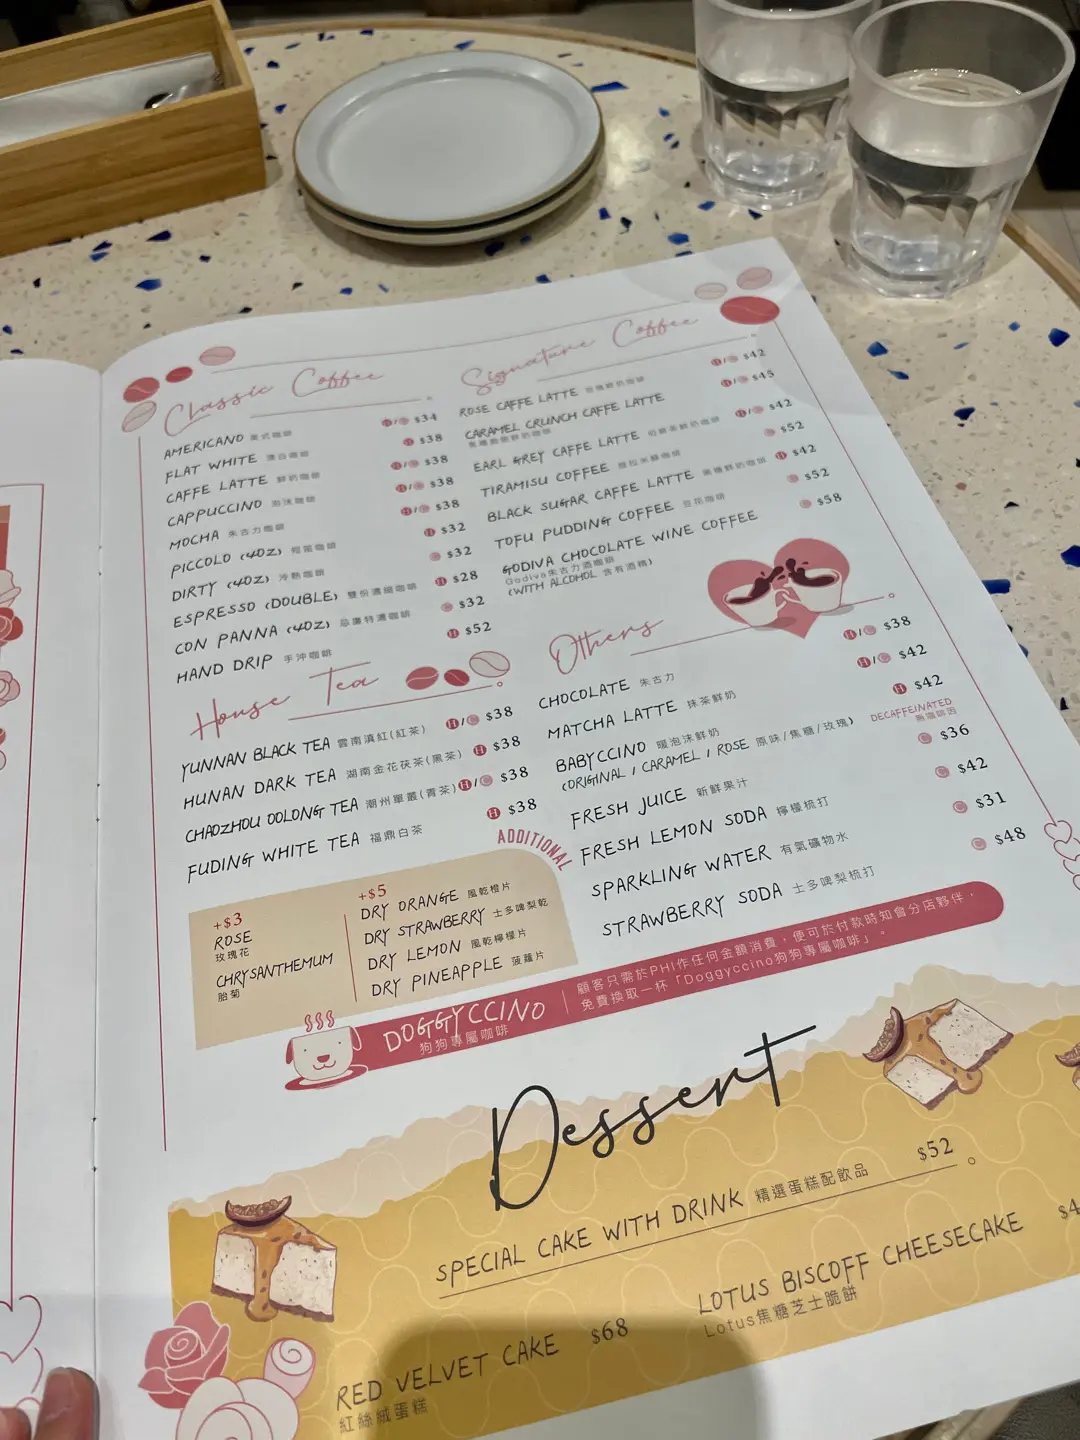 Classic Coffee
AMERICANO 美式咖啡 H/C $34
FLAT WHITE 澳白咖啡 H $38
CAFFE LATTE 鮮奶咖啡 H/C $38
CAPPUCCINO 泡沫咖啡 H/C $38
MOCHA 朱古力咖啡 H/C $38
PICCOLO (4OZ) H $32
DIRTY (4OZ) 冷熱咖啡 C $32
ESPRESSO (DOUBLE) 雙份濃縮咖啡 H $28
CON PANNA (4OZ) C $32
HAND DRIP 手沖咖啡 H $52
Signature Coffee
ROSE CAFFE LATTE 玫瑰鮮奶咖啡 H/C $42
CARAMEL CRUNCH CAFFE LATTE H/C $45
EARL GREY CAFFE LATTE 伯爵茶鮮奶咖啡 H/C $42
TIRAMISU COFFEE C $52
BLACK SUGAR CAFFE LATTE 黑糖鮮奶咖啡 H $42
TOFU PUDDING COFFEE 豆花咖啡 C $52
GODIVA CHOCOLATE WINE COFFEE C $58
Godiva朱古力酒咖啡
(WITH ALCOHOL 含有酒精)
House Tea
YUNNAN BLACK TEA 雲南滇紅(紅茶) H/C $38
HUNAN DARK TEA 湖南金花茯茶(黑茶) H $38
CHAOZHOU OOLONG TEA 潮州單叢(青茶) H/C $38
FUDING WHITE TEA 福鼎白茶 H $38
ADDITIONAL
+$3
ROSE
玫瑰花
CHRYSANTHEMUM
胎菊
+$5
DRY ORANGE 風乾橙片
DRY STRAWBERRY 士多啤梨乾
DRY LEMON 風乾檸檬片
DRY PINEAPPLE 菠蘿片
Others
CHOCOLATE 朱古力 H/C $38
MATCHA LATTE 抹茶鮮奶 H/C $42
BABYCCINO 暖泡沫鮮奶 H $42
(ORIGINAL / CARAMEL / ROSE 原味/焦糖/玫瑰) DECAFFEINATED
無咖啡因
FRESH JUICE 新鮮果汁 C $36
FRESH LEMON SODA 檸檬梳打 C $42
SPARKLING WATER 有氣礦物水 C $31
STRAWBERRY SODA 士多啤梨梳打 C $48
DOGGYCCINO
狗狗專屬咖啡
顧客只需於PHI作任何金額消費，便可於付款時知會分店夥伴，
免費換取一杯「Doggyccino狗狗專屬咖啡」。
Dessert
SPECIAL CAKE WITH DRINK 精選蛋糕配飲品 $52
RED VELVET CAKE $68
紅絲絨蛋糕
LOTUS BISCOFF CHEESECAKE $4
Lotus焦糖芝士脆餅